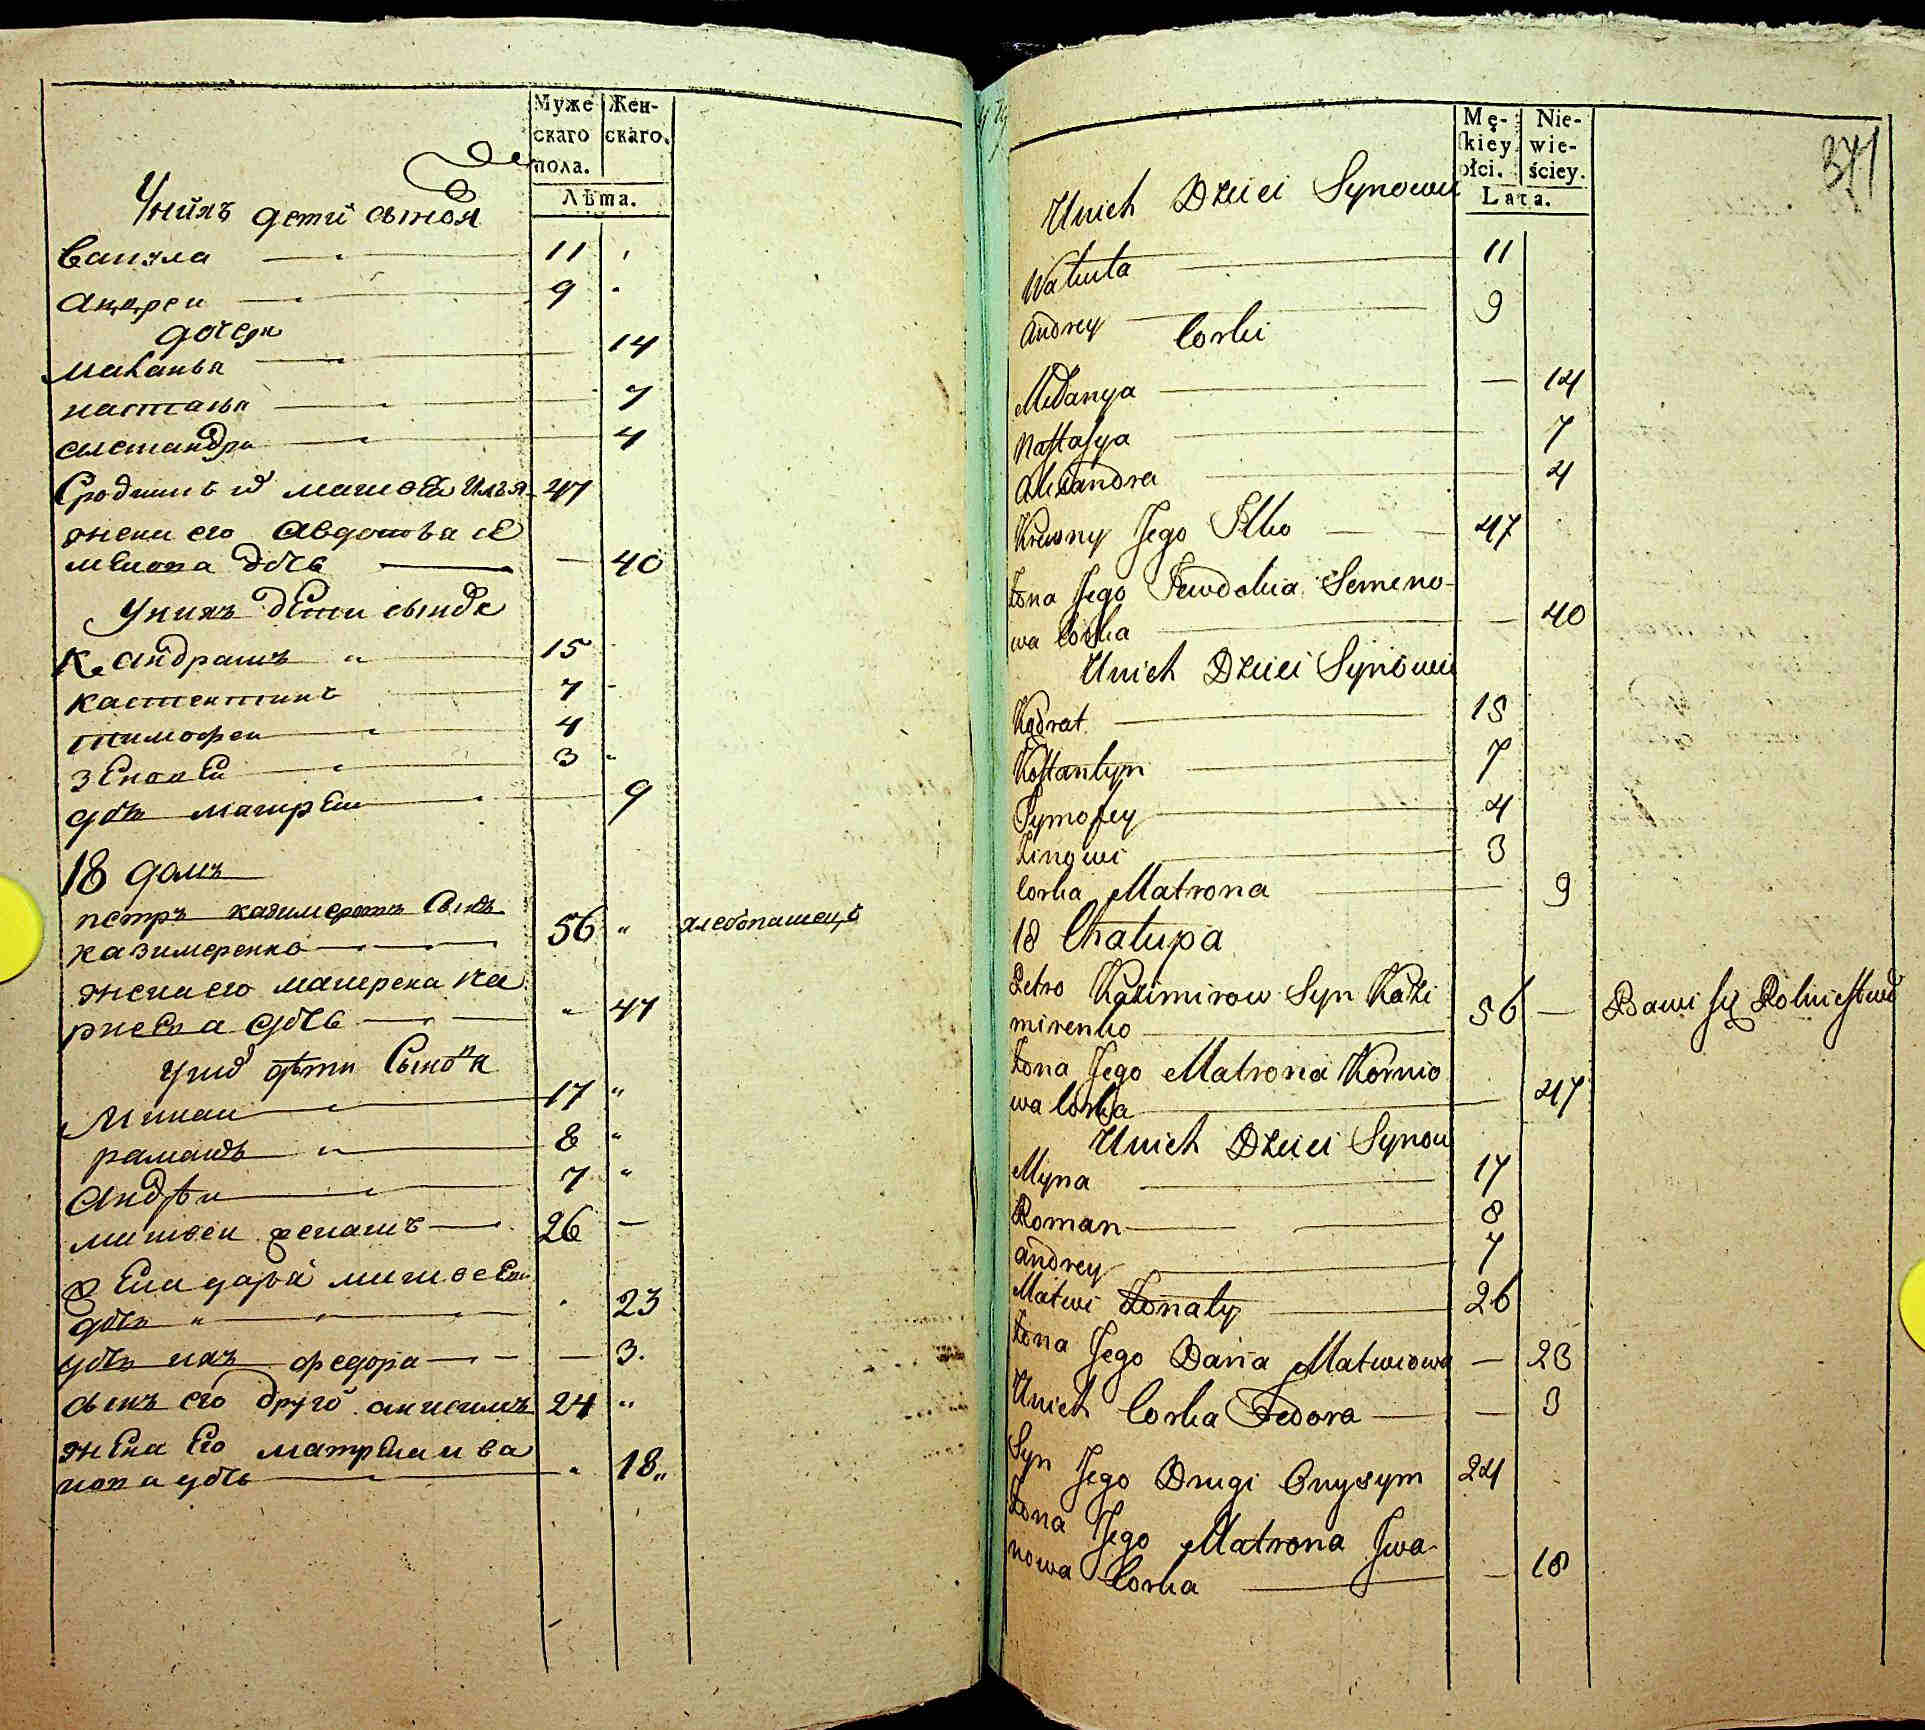 Муже
скаго
пола.
Жен-
скаго.
Лѣта.
Унихъ дети сыновя
Вакула 11
Андреи 9
дочери
малания 14
настася 7
алетандра 4
Сродный матвея Илья 47
жена его Авдотья се
менова дочь 40
Унихъ дети сынове
Кандратъ 15
кастентинъ 7
тимофеи 4
Зеновеи 3
дочь матрена 9
18 домъ
петръ казимеровъ сынъ
казимеренко 56 хлебопашецъ
жена его матрена ка
рнеева дочь 47
Унихъ дѣти Сыновя
Минаи 17
раманъ 8
Андрѣи 7
матвеи женатъ 26
жена дарья матвеева
дочь 23
дочь ихъ федора 3.
сынъ его другой анисимъ 24
жена Его матрена ива
нова дочь 18
371
Mę-
skiey
płci.
Nie-
wie-
ściey.
Lata.
Unich Dzieci Synowie
Wakuła 11
Andrey 9
Corki
Mełanya 14
Nastasya 7
Alexandra 4
Krewny Jego Ilko 47
Żona Jego Fewdokia Semeno-
wa Corka 40
Unich Dzieci Synowie
Kądrat 15
Kostantyn 7
Tymofey 4
Zinowi 3
Corka Matrona 9
18 Chałupa
Petro Kazimirow Syn Kazi
mirenko 56 — Bawi się Rolnictwe
Żona Jego Matrona Kornio
wa Corka 47
Unich Dzieci Synow
Myna 17
Roman 8
Andrey 7
Matwi Żonaty 26
Żona Jego Daria Matwiowa — 23
Unich Corka Fedora — 3
Syn Jego Drugi Onysym 24
Żona Jego Matrona Iwa
nowa Corka — 18